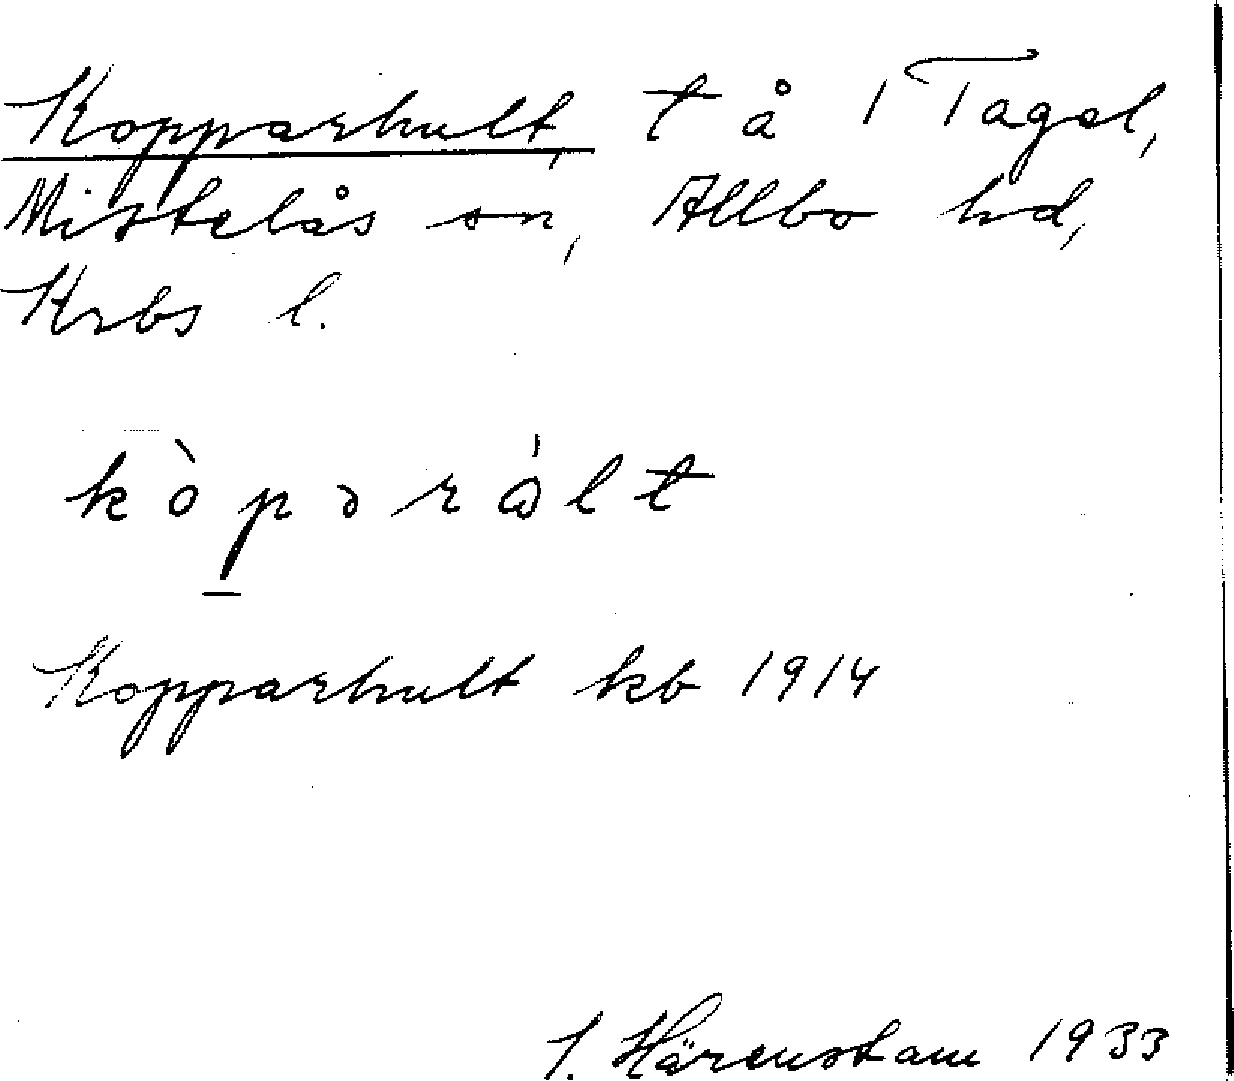 Kopparhult, t å 1 Tagel,
Mistelås sn, Allbo hd,
Krbs l.
kòpərált
Kopparhult kb 1914
J. Härenstam 1933